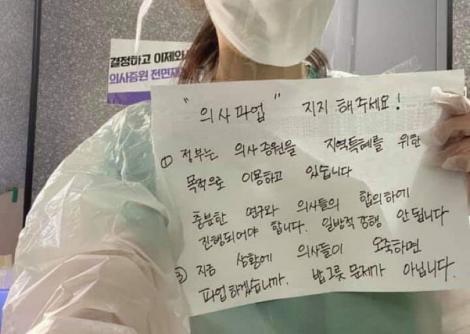 결정하고 이제와
의사증원 전면재
" 의사파업 " 지지 해주세요!
① 정부는 의사증원을 지역특혜를 위한
목적으로 이용하고 있습니다
충분한 연구와 의사들의 합의하에
진행되어야 합니다. 일방적 강행 안됩니다
② 지금 상황에 의사들이 오죽하면
파업하겠습니까. 밥그릇 문제가 아닙니다.